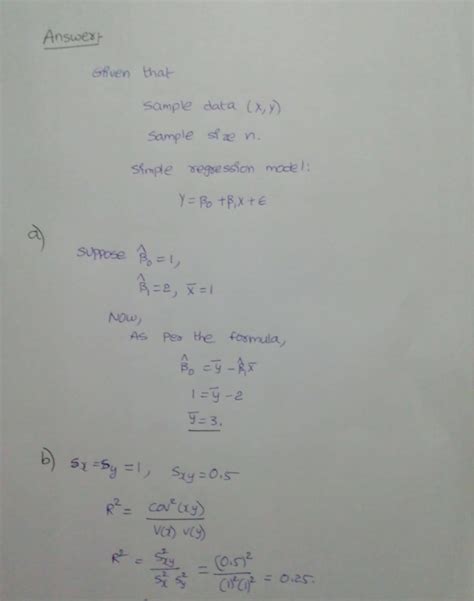 Answer:-
Given that
Sample data (x, y)
Sample size n.
Simple regression model:
Y = β₀ + β₁x + ε
a)
Suppose β̂₀ = 1,
β̂₁ = 2, x̄ = 1
Now,
As per the formula,
β̂₀ = ȳ - β̂₁x̄
1 = ȳ - 2
ȳ = 3.
b) Sx = Sy = 1, Sxy = 0.5
R² = Cov²(xy) / V(x) V(y)
R² = S²xy / S²x S²y = (0.5)² / (1)²(1)² = 0.25.